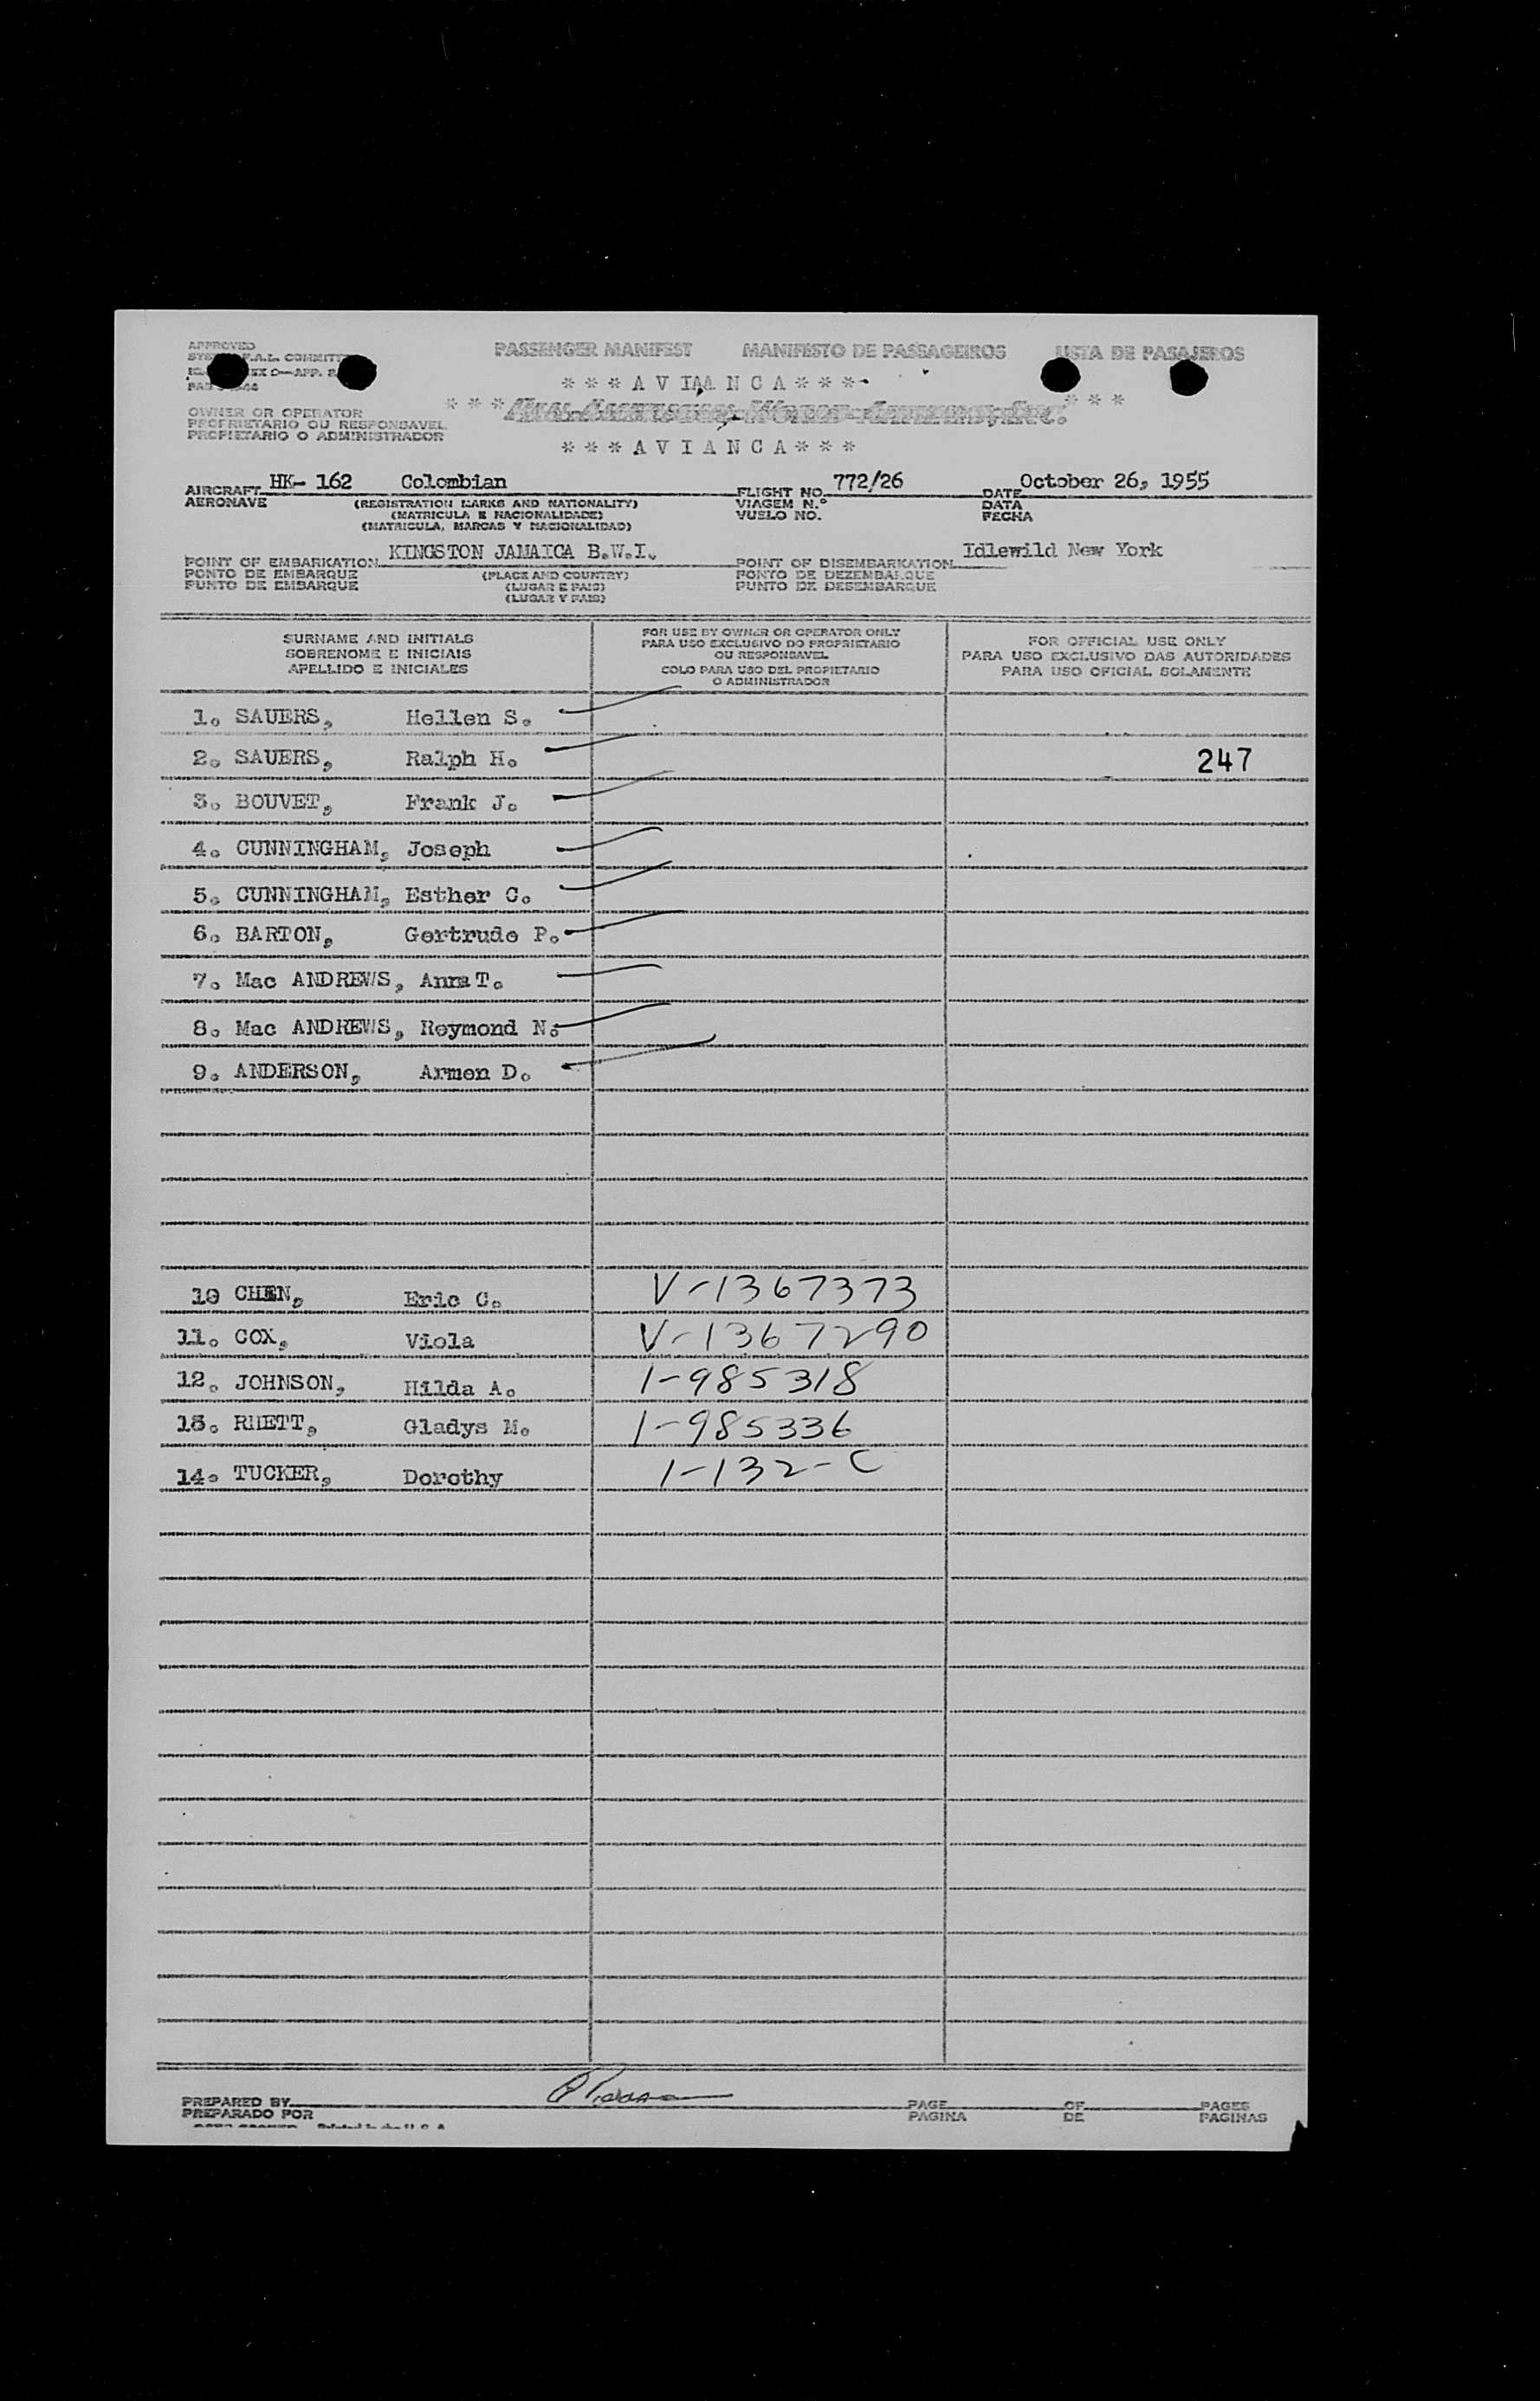 APPROVED
PASSENGER MANIFEST MANIFESTO DE PASSAGEIROS LISTA DE PASAJEROS
* * * A V I A N C A * * *
* * * Pan American World Airways, Inc. * * *
* * * A V I A N C A * * *
OWNER OR OPERATOR
PROPRIETARIO OU RESPONSAVEL
PROPIETARIO O ADMINISTRADOR
AIRCRAFT HK- 162 Colombian FLIGHT NO. 772/26 DATE October 26, 1955
AERONAVE (REGISTRATION MARKS AND NATIONALITY) VIAGEM N.º DATA
(MATRICULA E NACIONALIDADE) VUELO NO. FECHA
(MATRICULA, MARCAS Y NACIONALIDAD)
POINT OF EMBARKATION KINGSTON JAMAICA B.W.I. POINT OF DISEMBARKATION Idlewild New York
PONTO DE EMBARQUE (PLACE AND COUNTRY) PONTO DE DEZEMBARQUE
PUNTO DE EMBARQUE (LUGAR E PAIS) PUNTO DE DESEMBARQUE
(LUGAR Y PAIS)
SURNAME AND INITIALS
SOBRENOME E INICIAIS
APELLIDO E INICIALES
FOR USE BY OWNER OR OPERATOR ONLY
PARA USO EXCLUSIVO DO PROPRIETARIO
OU RESPONSAVEL
COLO PARA USO DEL PROPIETARIO
O ADMINISTRADOR
FOR OFFICIAL USE ONLY
PARA USO EXCLUSIVO DAS AUTORIDADES
PARA USO OFICIAL SOLAMENTE
1. SAUERS, Hellen S.
2. SAUERS, Ralph H. 247
3. BOUVET, Frank J.
4. CUNNINGHAM, Joseph
5. CUNNINGHAM, Esther C.
6. BARTON, Gertrude P.
7. Mac ANDREWS, Anna T.
8. Mac ANDREWS, Reymond N.
9. ANDERSON, Armen D.
10 CHEN, Eric C. V-1367373
11. COX, Viola V-1367290
12. JOHNSON, Hilda A. 1-985318
13. RHETT, Gladys M. 1-985336
14. TUCKER, Dorothy 1-132-C
PREPARED BY PAGE OF PAGES
PREPARADO POR PAGINA DE PAGINAS